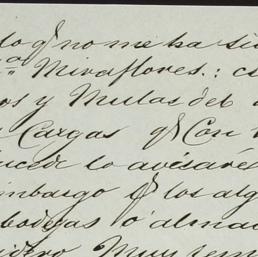 do q no me ha si
Miraflores.: es
os y Mulas del
Cargas q Con
lo avisaré
embargo q los alg
bodegas ó alma
Muy tem